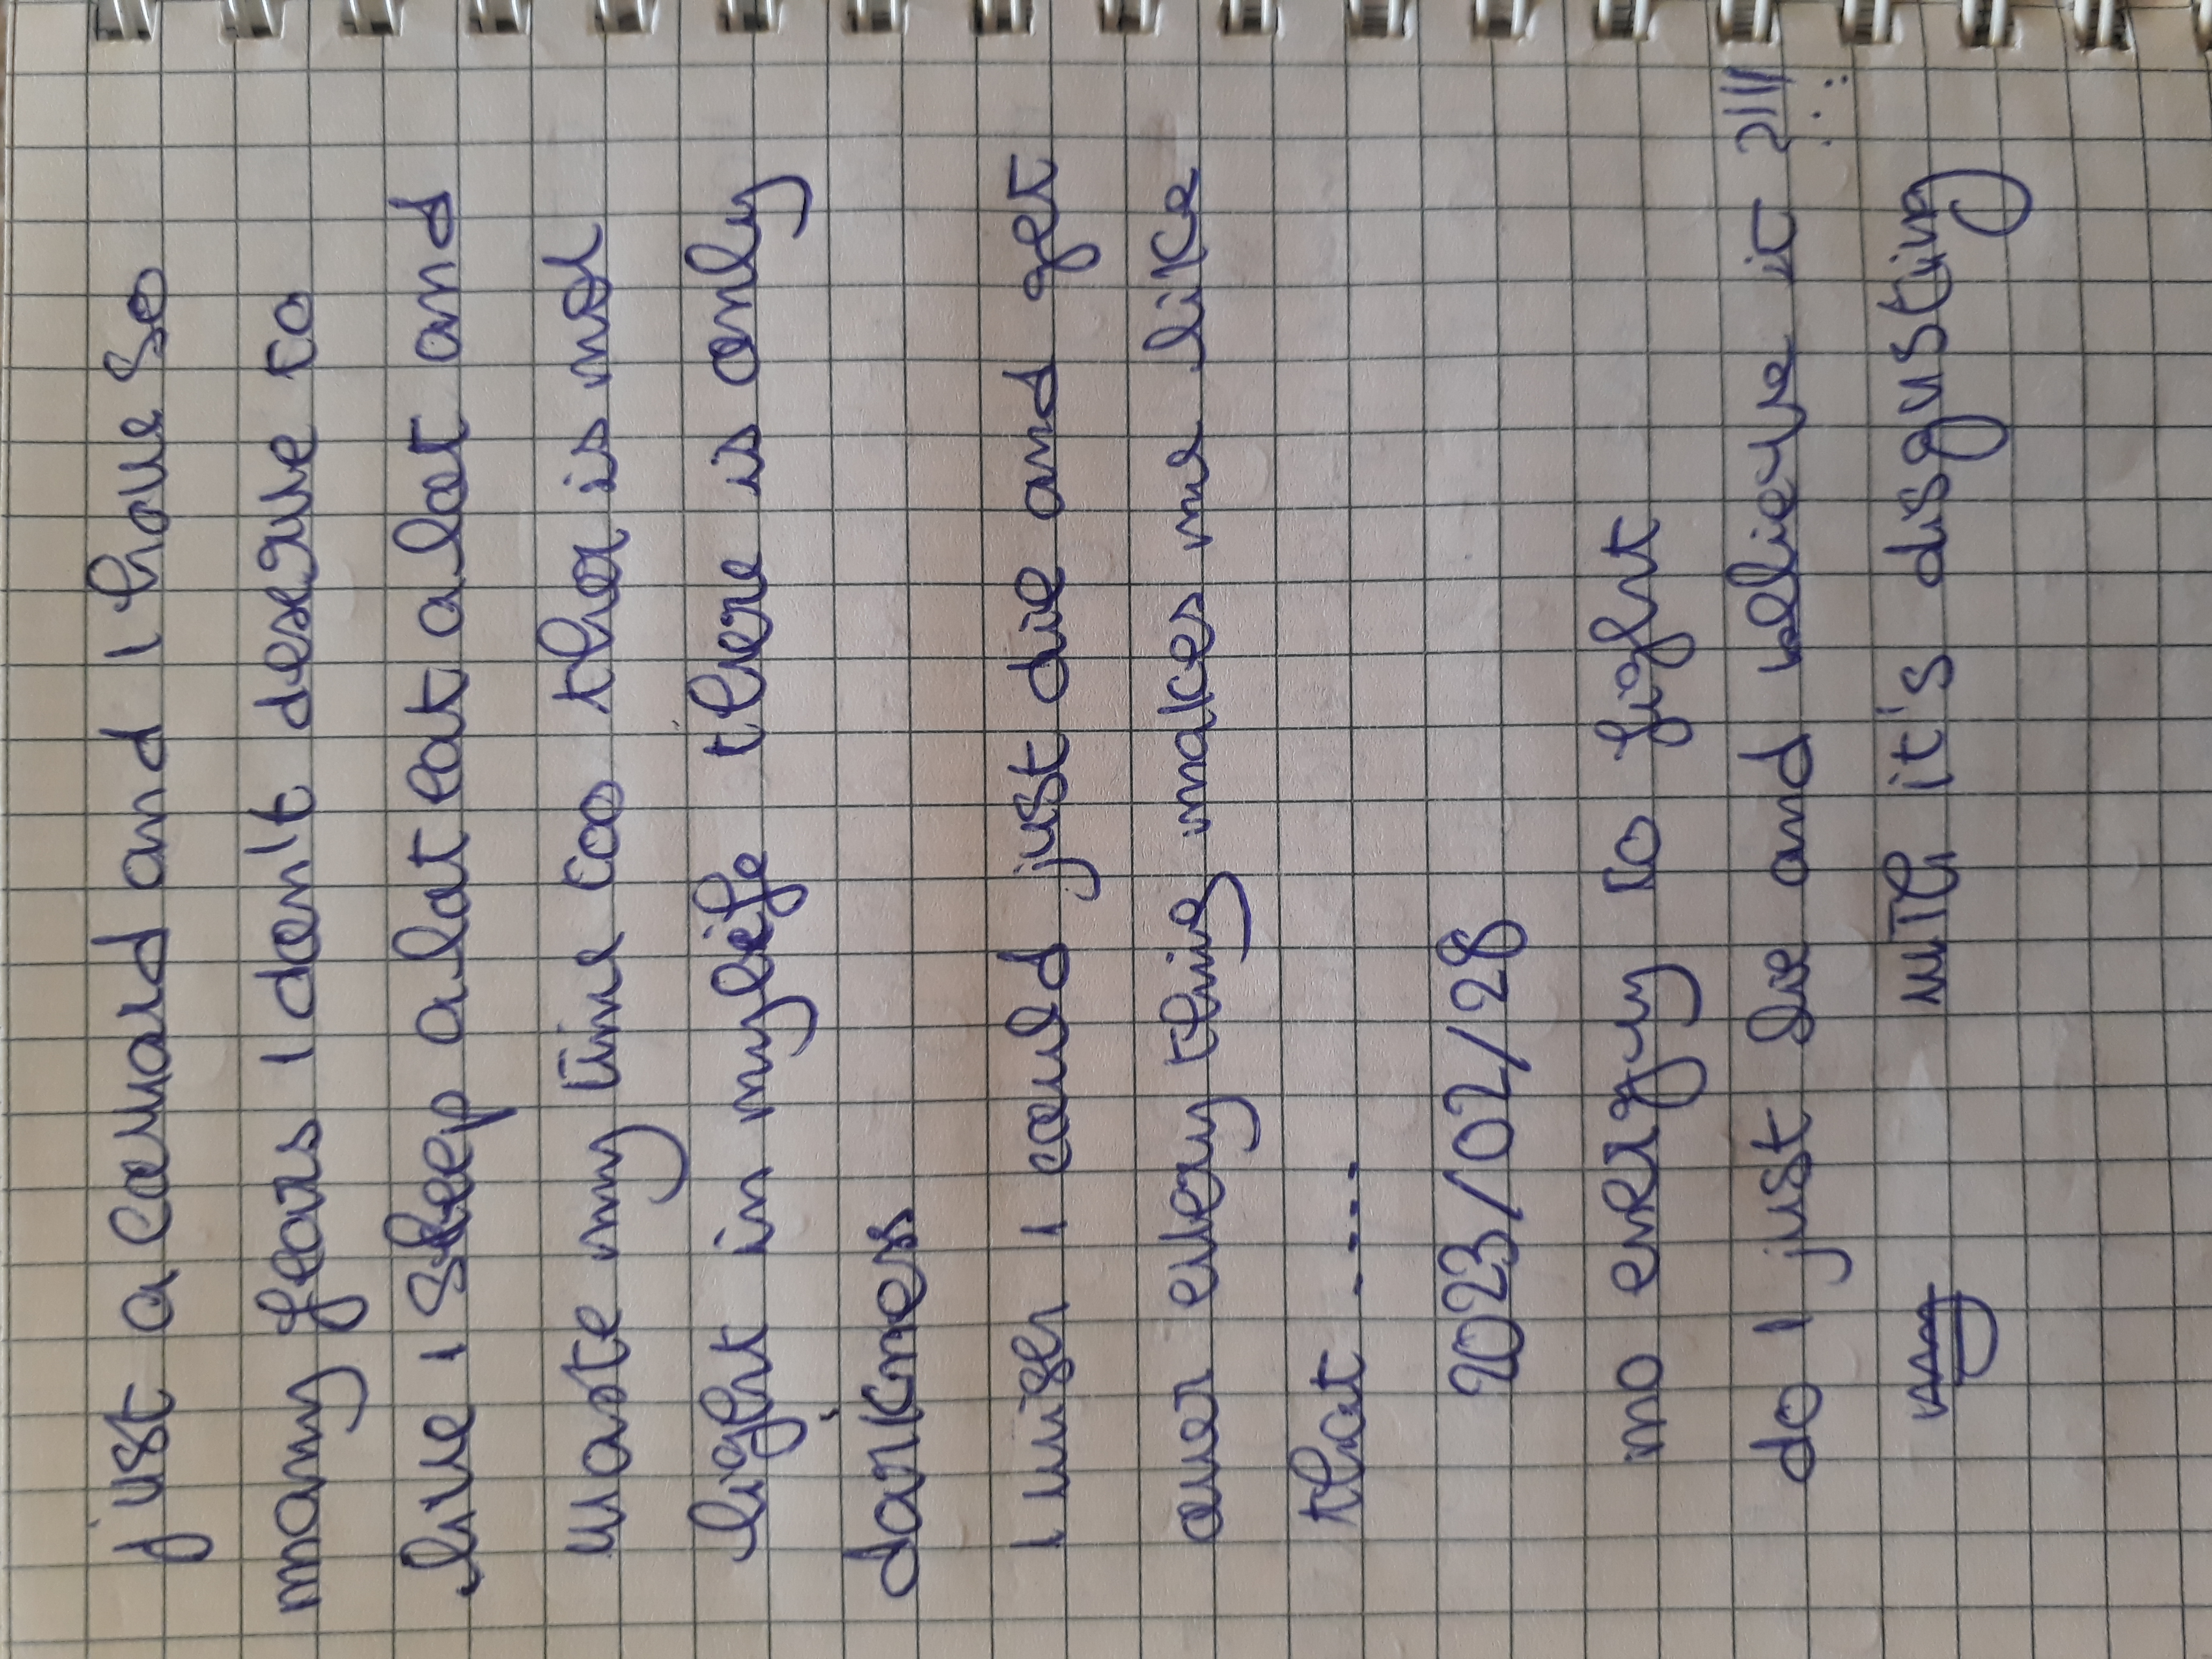 just a coward and I have so
many fears I don't deserve to
live I sleep alot eat alot and
waste my time too ther is not
light in mylife there is only
darknes
I wish I could just die and get
over every thing makes me like
that .....
2023/02/28
no energy to fight
do I just lie and believe it ?!!!
with it's disgusting